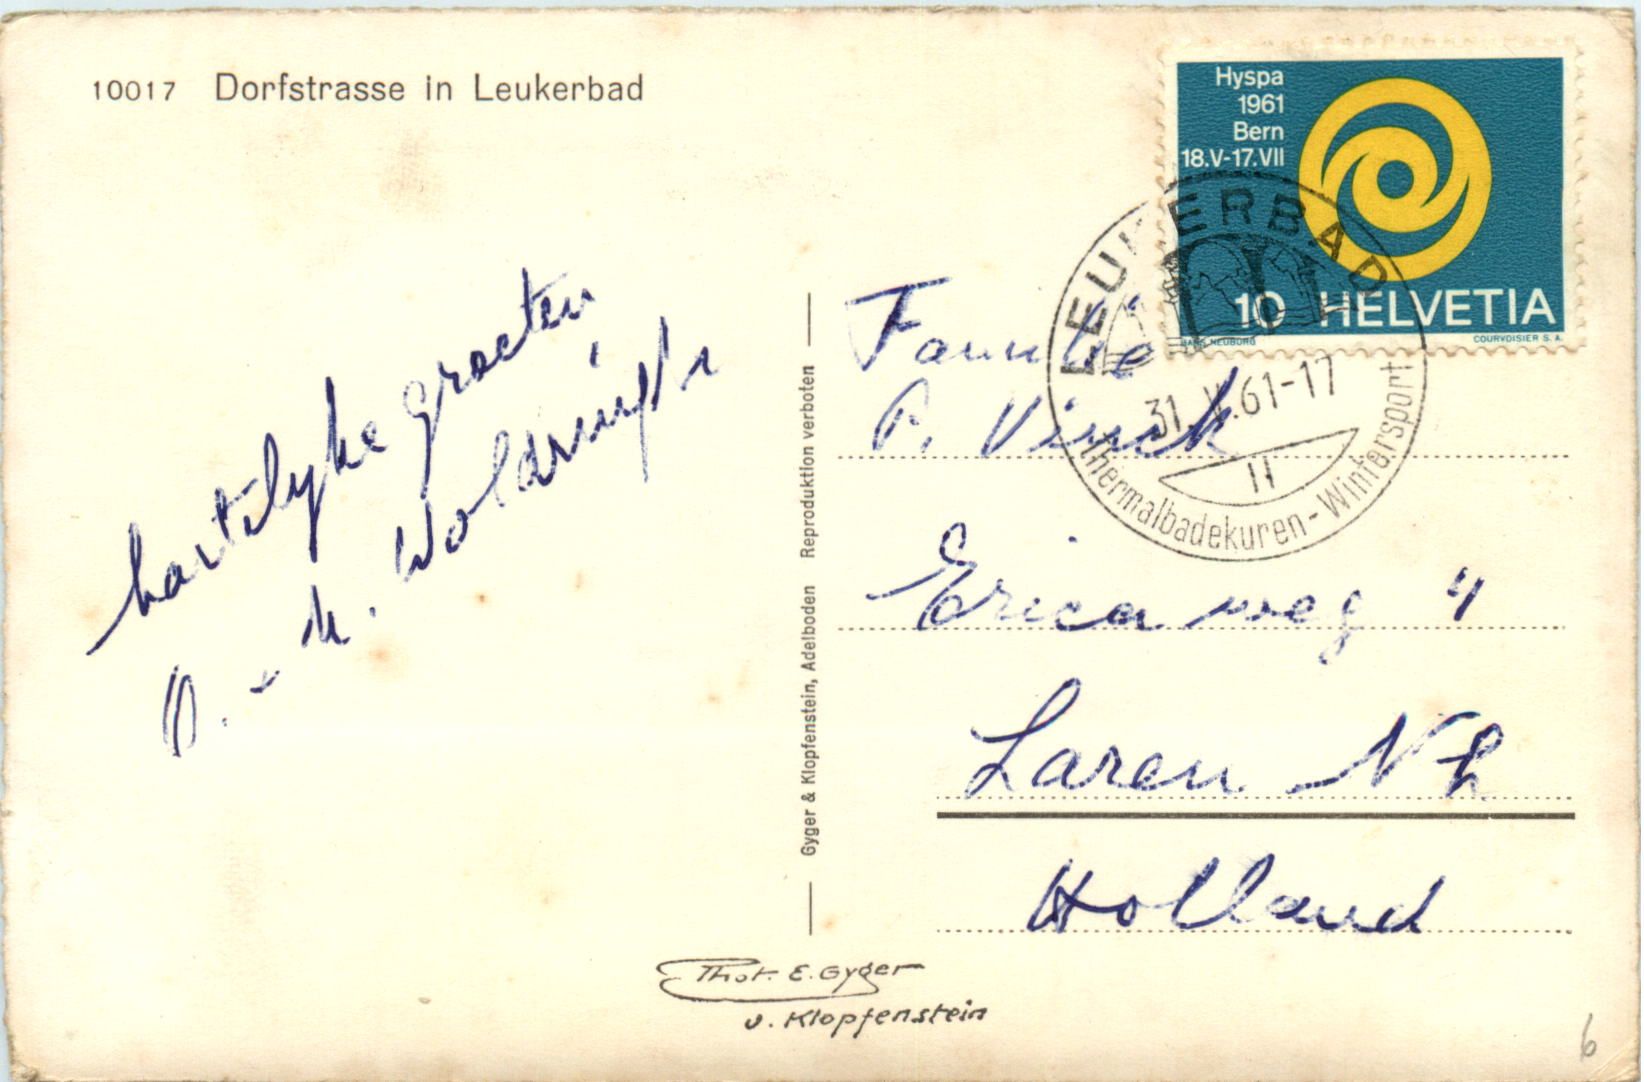 10017 Dorfstrasse in Leukerbad
Hyspa
1961
Bern
18.V-17.VII
10 HELVETIA
HANS NEUBURG
COURVOISIER S. A.
LEUKERBAD
31.V.61-17
Thermalbadekuren - Wintersport
hartelyke groeten
O. - M. Woldringh
Familie
P. Vinck
Ericaweg 4
Laren NH
Holland
Gyger & Klopfenstein, Adelboden Reproduktion verboten
Phot. E. Gyger
u. Klopfenstein
6